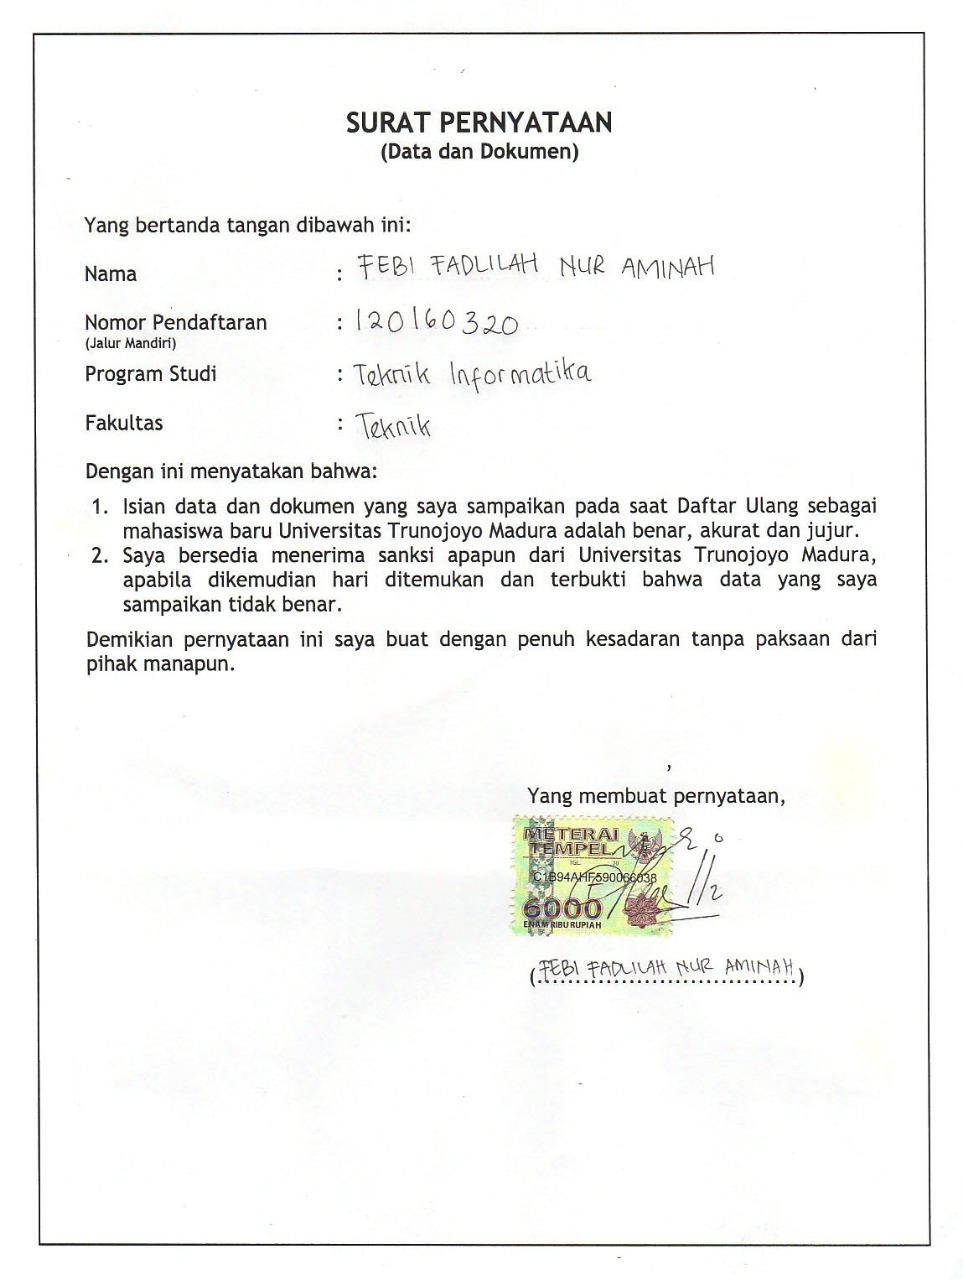 SURAT PERNYATAAN
(Data dan Dokumen)
Yang bertanda tangan dibawah ini:
Nama : FEBI FADLILAH NUR AMINAH
Nomor Pendaftaran : 120160320
(Jalur Mandiri)
Program Studi : Teknik Informatika
Fakultas : Teknik
Dengan ini menyatakan bahwa:
1. Isian data dan dokumen yang saya sampaikan pada saat Daftar Ulang sebagai
mahasiswa baru Universitas Trunojoyo Madura adalah benar, akurat dan jujur.
2. Saya bersedia menerima sanksi apapun dari Universitas Trunojoyo Madura,
apabila dikemudian hari ditemukan dan terbukti bahwa data yang saya
sampaikan tidak benar.
Demikian pernyataan ini saya buat dengan penuh kesadaran tanpa paksaan dari
pihak manapun.
,
Yang membuat pernyataan,
METERAI
TEMPEL
TGL 20
C1B94AHF590066038
6000
ENAM RIBU RUPIAH
(FEBI FADLILAH NUR AMINAH)